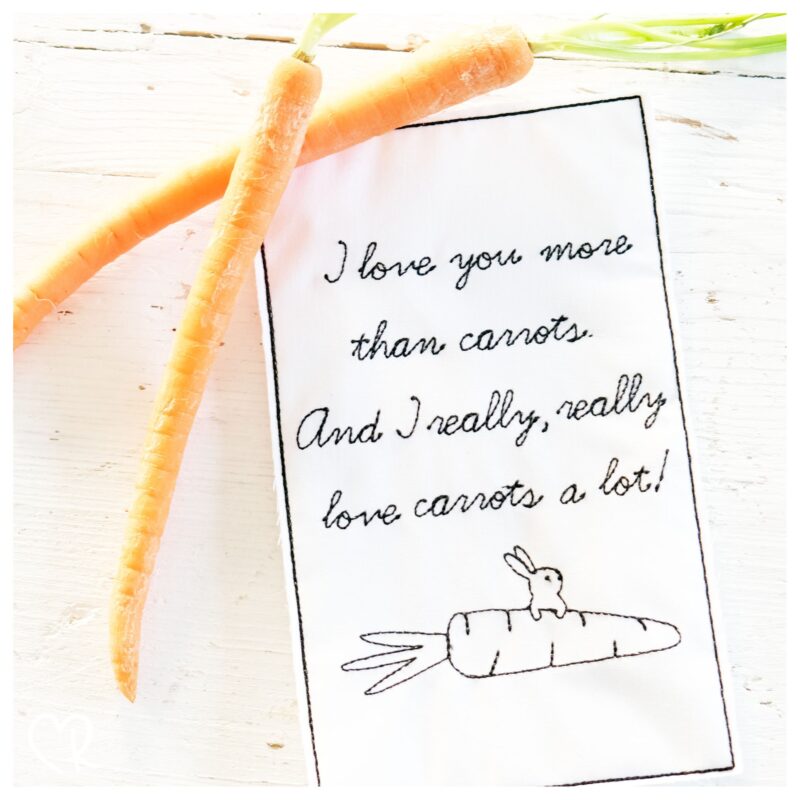 I love you more
than carrots.
And I really, really
love carrots a lot!